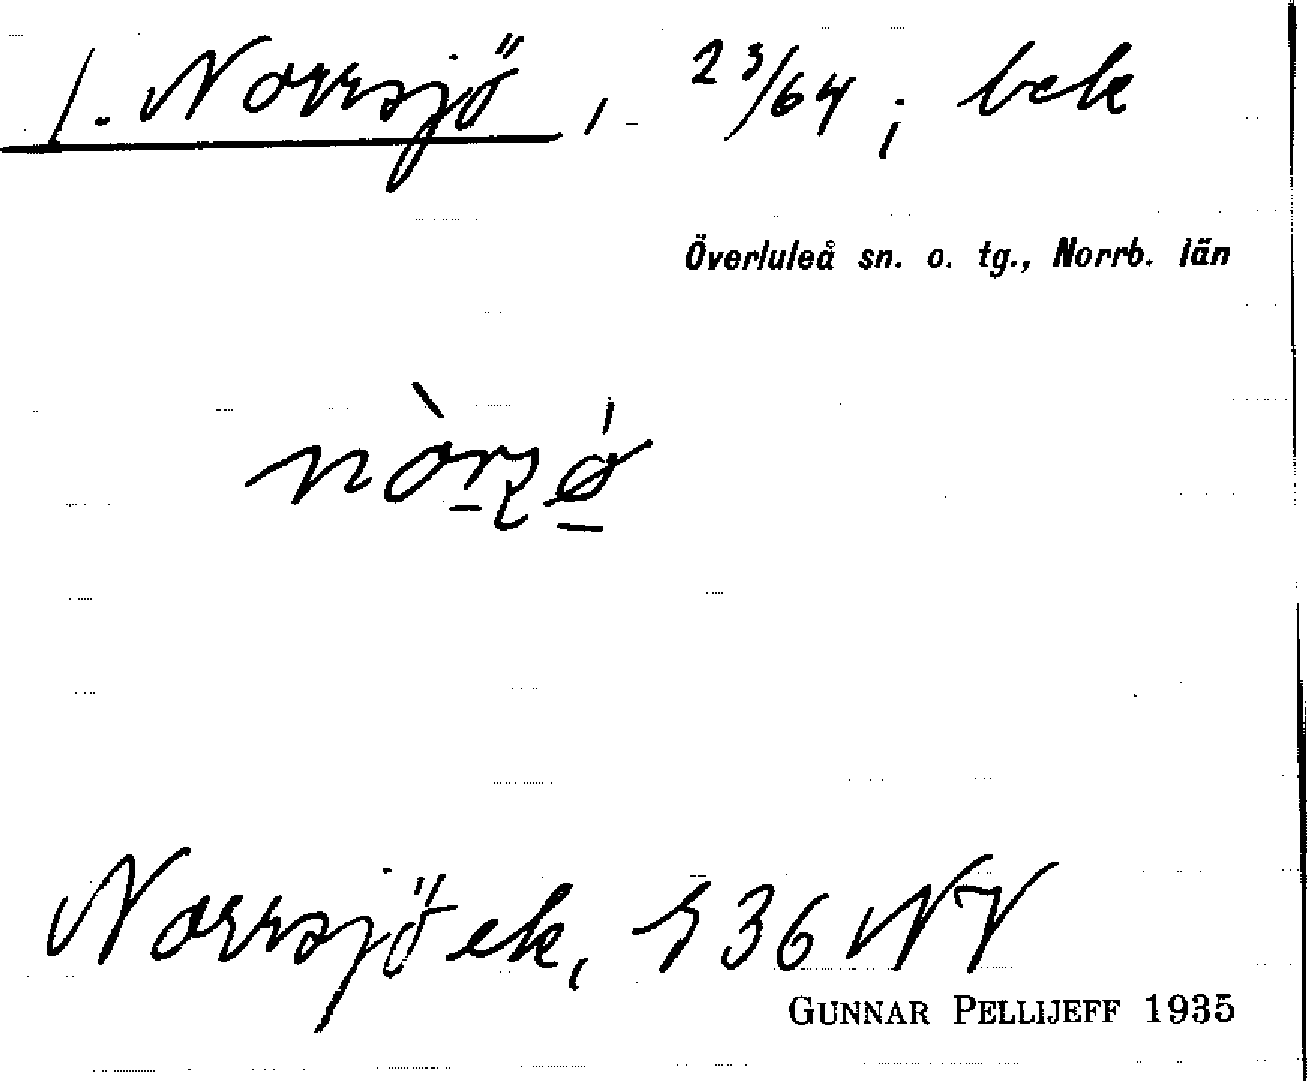 1. Norrsjö, 23/64; bek
Överluleå sn. o. tg., Norrb. län
nòrʂǿ
Norrsjö ek, 936 NV
GUNNAR PELLIJEFF 1935